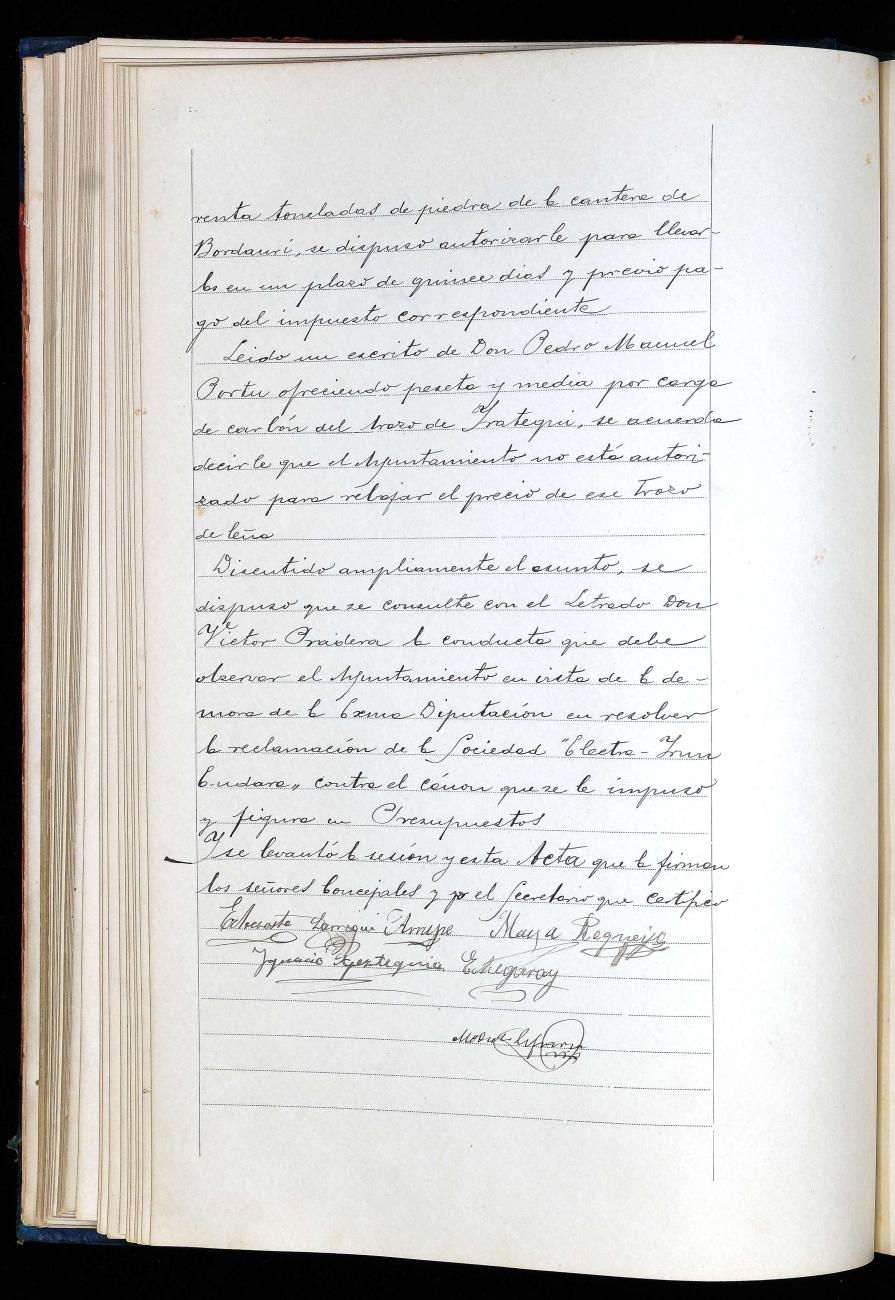 renta toneladas de piedra de la cantera de
Bordauri, se dispuso autorizarle para llevar-
las en un plazo de quince dias y previo pa-
go del impuesto correspondiente
Leido un escrito de Don Pedro Manuel
Portu ofreciendo peseta y media por carga
de carbón del trozo de Irategui, se acuerda
decirle que el Ayuntamiento no está autori-
zado para rebajar el precio de ese trozo
de leña
Discutido ampliamente el asunto, se
dispuso que se consulte con el Letrado Don
Victor Pradera la conducta que debe
observar el Ayuntamiento en vista de la de-
mora de la Exma Diputación en resolver
la reclamación de la Sociedad "Electra-Irun
Endara" contra el cánon que se le impuso
y figura en Presupuestos
Y se levantó la sesión y esta Acta que la firman
los señores Concejales y yo el Secretario que certifico
Larregui Maya Reguejo
Ignacio Echegaray